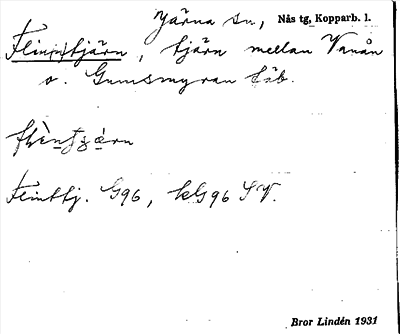 Järna sn, Nås tg, Kopparb. l.
Flin(n)tjärn, tjärn mellan Vanån
o. Gumsmyran häb.
Flintj. G96, kG96 SV.
Bror Lindén 1931